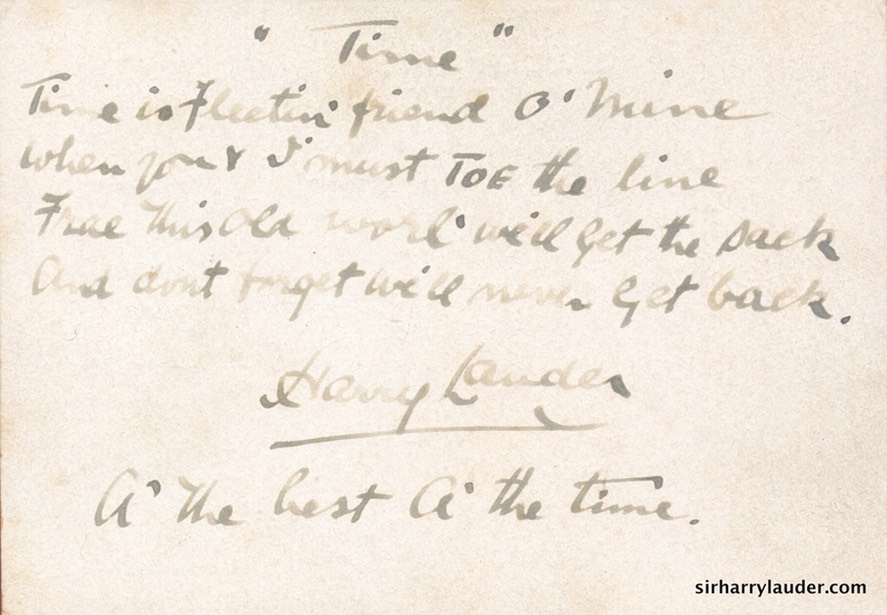 " Time "
Time is Fleetin' friend O' Mine
When you & I must TOE the line
Frae This Old worl' we'll Get the Sack
And dont forget We'll never Get back.
Harry Lauder
A' The best A' the time.
sirharrylauder.com